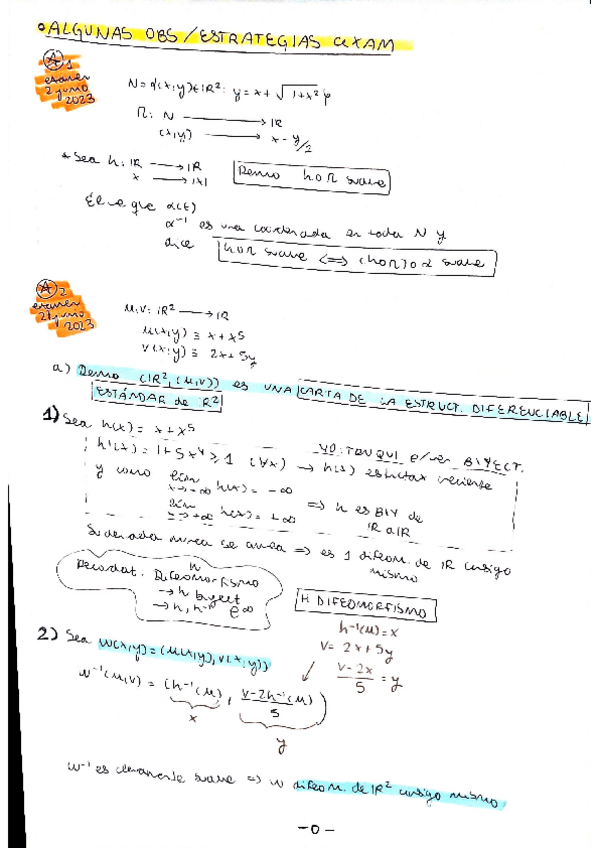 • ALGUNAS OBS/ESTRATEGIAS EXAM
A 1
examen
2 junio
2023
N = {(x,y) ∈ ℝ²: y = x + √1+x² }
π: N → ℝ
(x,y) → x - y/2
* Sea h: ℝ → ℝ
x → |x|
Demo h∘π suave
Él que α(t)
α⁻¹ es una coordenada en toda N y
dice h∘π suave <=> (h∘π)∘α suave
A 2
examen
21 junio
2023
u,v: ℝ² → ℝ
u(x,y) ≡ x + x⁵
v(x,y) ≡ 2x + 5y
a) Demo (ℝ², (u,v)) es UNA CARTA DE LA ESTRUCT. DIFERENCIABLE
ESTÁNDAR de ℝ²
1) Sea h(x) = x + x⁵
YO: TON QUI p/ver BIYECT.
h'(x) = 1 + 5x⁴ ≥ 1 (∀x) → h(x) estrictam creciente
y como lim x→-∞ h(x) = -∞
lim x→+∞ h(x) = +∞ => h es BIY de
ℝ a ℝ
Su derivada nunca se anula => es 1 difeom. de ℝ consigo
mismo
Recordat. Difeomorfismo h
→ h biyect
→ h, h⁻¹ C^∞
h DIFEOMORFISMO
h⁻¹(u) = x
v = 2x + 5y
(v - 2x)/5 = y
2) Sea w(x,y) = (u(x,y), v(x,y))
w⁻¹(u,v) = (h⁻¹(u), (v - 2h⁻¹(u))/5)
x
y
w⁻¹ es claramente suave => w difeom. de ℝ² consigo mismo
- 0 -